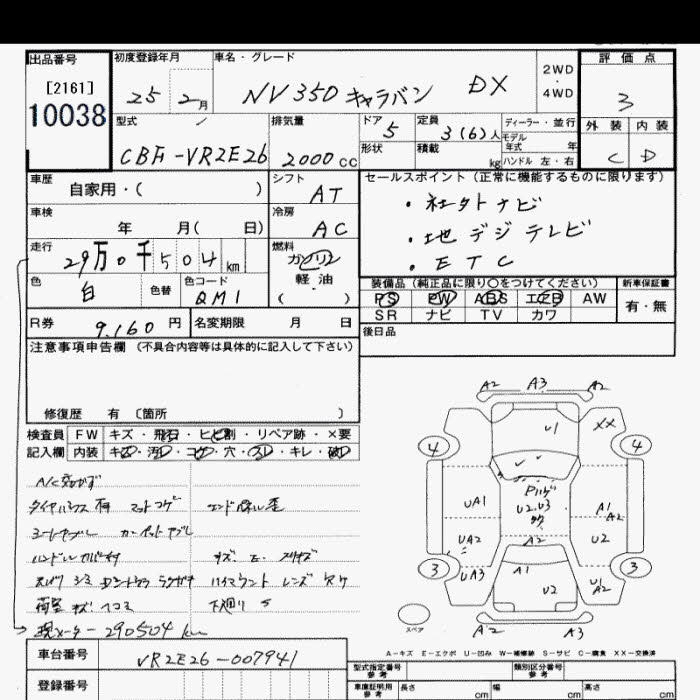 出品番号 初度登録年月 車名・グレード 2WD・4WD 評価点
[2161]
10038
25 2月 NV350 キャラバン DX 3
型式 排気量 ドア 定員 ディーラー・並行 外装 内装
5 3(6)人 モデル年式 年
CBF-VR2E26 2000cc 形状 積載 kg ハンドル 左・右 C D
車歴 シフト セールスポイント (正常に機能するものに限ります)
自家用・( ) AT
・社外ナビ
車検 冷房
年 月( 日) AC
・地デジテレビ
走行 燃料
29万0千504km ガソリン
・ETC
色 色替 色コード 軽油
白 QM1 ( )
装備品 (純正品に限り〇をつけてください) 新車保証書
PS PW ABS エアB AW 有・無
SR ナビ TV カワ
R券 9,160円 名変期限 月 日
後日品
注意事項申告欄 (不具合内容等は具体的に記入して下さい)
修復歴 有 〔箇所 〕
検査員 FW キズ・飛石・ヒビ割・リペア跡・×要
記入欄 内装 キズ・汚レ・コゲ・穴・スレ・キレ・破レ
A/C効かず
マットコゲ
カーペットヤブレ
ハイマウントレンズカケ
荷室キズヘコミ 下廻りS
現メーター290504km
A2 A3 A2
U1 XX
4 4
UA1 A1 A2
A2
UA2 U2
3 3
UA3 A1 U2 U1 A2
スペア A2 A3
A-キズ E-エクボ U-凹み W-補修跡 S-サビ C-腐食 XX-交換済
車台番号 VR2E26-007941
型式指定番号 参考 類別区分番号 参考
登録番号
車庫証明用 参考 長さ cm 幅 cm 高さ cm